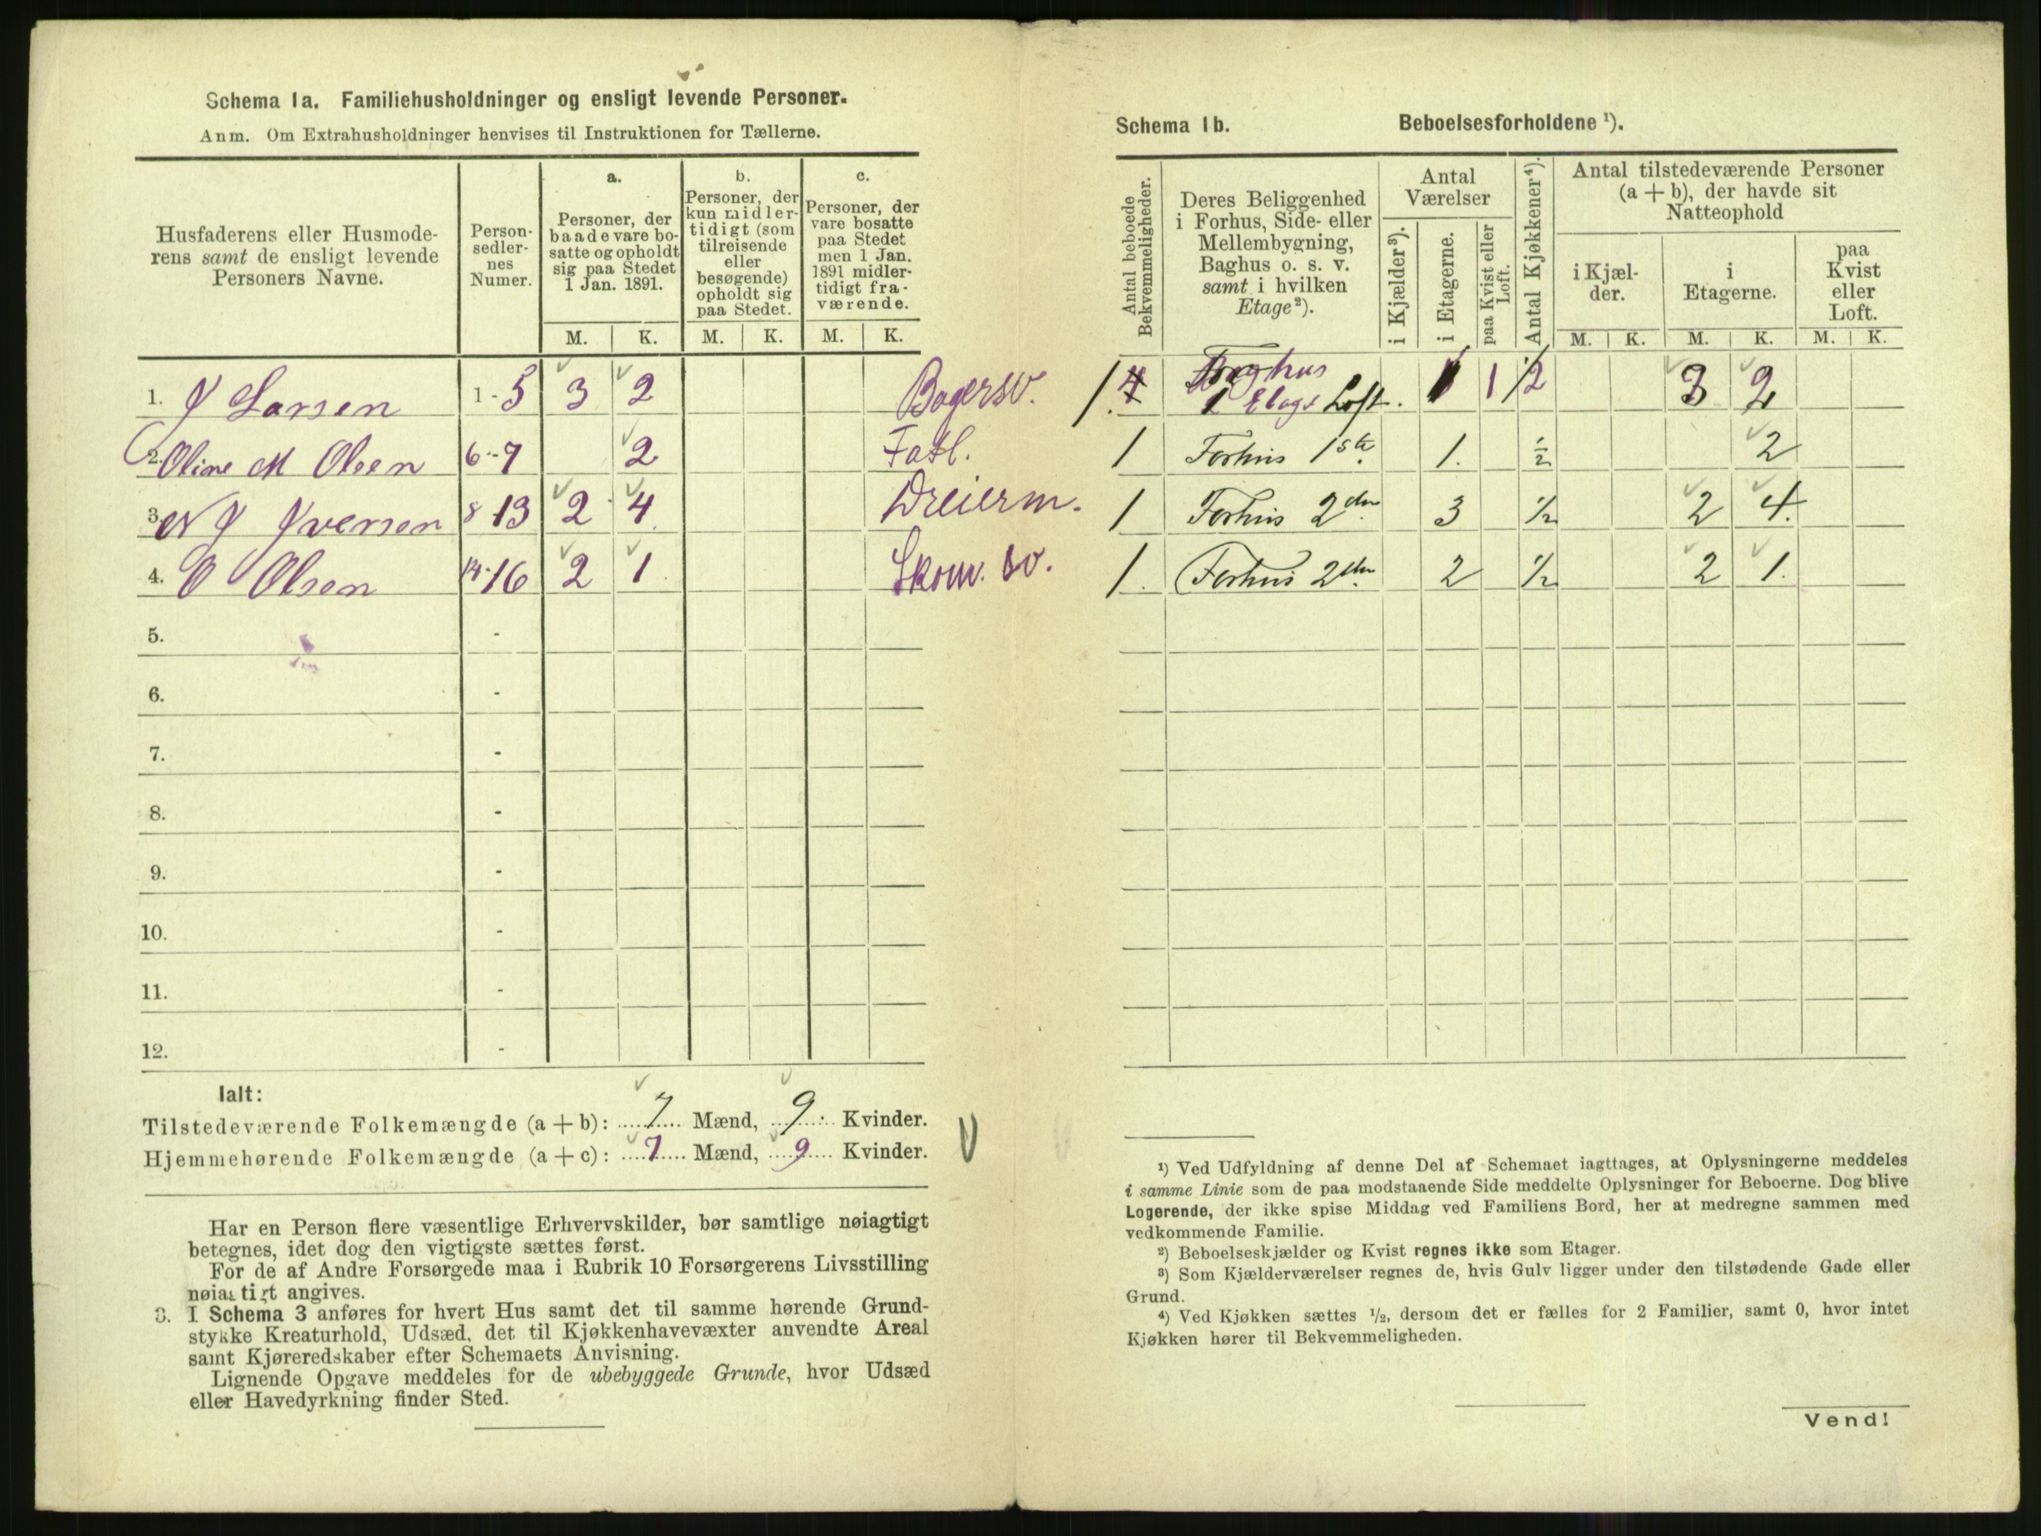 Schema 1a. Familiehusholdninger og ensligt levende Personer.
Anm. Om Extrahusholdninger henvises til Instruktionen for Tællerne.
Husfaderens eller Husmoderens samt de ensligt levende Personers Navne.
Person-sedler-nes Numer.
a.
Personer, der baade vare bosatte og opholdt sig paa Stedet 1 Jan. 1891.
b.
Personer, der kun midlertidigt (som tilreisende eller besøgende) opholdt sig paa Stedet.
c.
Personer, der vare bosatte paa Stedet men 1 Jan. 1891 midlertidigt fraværende.
M. K. M. K. M. K.
1. J Larsen 1-5 3 2 Bagersv.
2. Oline M Olsen 6-7 2 Fatl.
3. N J Iversen 8-13 2 4 Dreierm.
4. O Olsen 14-16 2 1 Skom. sv.
5. -
6. -
7. -
8. -
9. -
10. -
11. -
12. -
Ialt:
Tilstedeværende Folkemængde (a + b): 7 Mænd, 9 Kvinder.
Hjemmehørende Folkemængde (a + c): 7 Mænd, 9 Kvinder.
Har en Person flere væsentlige Erhvervskilder, bør samtlige nøiagtigt
betegnes, idet dog den vigtigste sættes først.
For de af Andre Forsørgede maa i Rubrik 10 Forsørgerens Livsstilling
nøiagtigt angives.
3. I Schema 3 anføres for hvert Hus samt det til samme hørende Grund-
stykke Kreaturhold, Udsæd, det til Kjøkkenhavevæxter anvendte Areal
samt Kjøreredskaber efter Schemaets Anvisning.
Lignende Opgave meddeles for de ubebyggede Grunde, hvor Udsæd
eller Havedyrkning finder Sted.
Schema 1b. Beboelsesforholdene ¹).
Antal beboede Bekvemmeligheder.
Deres Beliggenhed i Forhus, Side- eller Mellembygning, Baghus o. s. v. samt i hvilken Etage²).
Antal Værelser
i Kjælder³).
i Etagerne.
paa Kvist eller Loft.
Antal Kjøkkener⁴).
Antal tilstedeværende Personer (a + b), der havde sit Natteophold
i Kjælder.
i Etagerne.
paa Kvist eller Loft.
M. K. M. K. M. K.
1. 1 Etage Loft. 1 1/2 3 2
1 Forhus 1ste. 1. ½ 2
1 Forhus 2den 3 ½ 2 4.
1. Forhus 2den. 2 ½ 2 1.
¹) Ved Udfyldning af denne Del af Schemaet iagttages, at Oplysningerne meddeles
i samme Linie som de paa modstaaende Side meddelte Oplysninger for Beboerne. Dog blive
Logerende, der ikke spise Middag ved Familiens Bord, her at medregne sammen med
vedkommende Familie.
²) Beboelseskjælder og Kvist regnes ikke som Etager.
³) Som Kjælderværelser regnes de, hvis Gulv ligger under den tilstødende Gade eller
Grund.
⁴) Ved Kjøkken sættes ½, dersom det er fælles for 2 Familier, samt 0, hvor intet
Kjøkken hører til Bekvemmeligheden.
Vend!